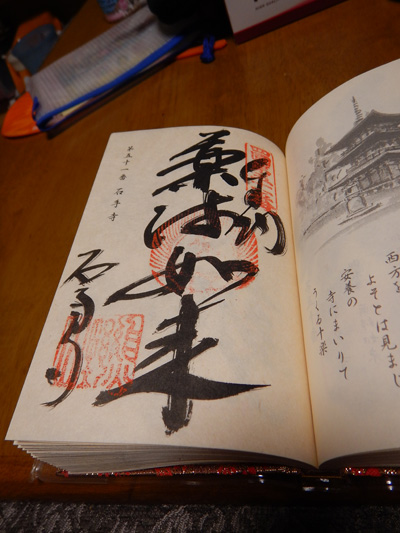 西方を
よそとは見まじ
安養の
寺にまいりて
うくる十楽
奉納
薬師如来
第五十一番 石手寺
石手寺